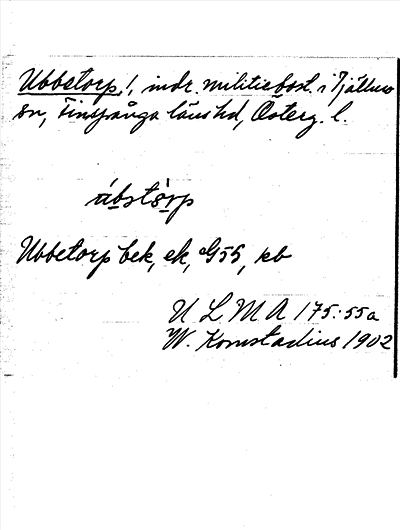 Ubbetorp!, indr. militiebost. i Tjällmo
sn, Finspånga läns hd, Österg. l.
ábstòrp
Ubbetorp bek, ek, G55, kb
ULMA 175:55a
W. Kornstadius 1902